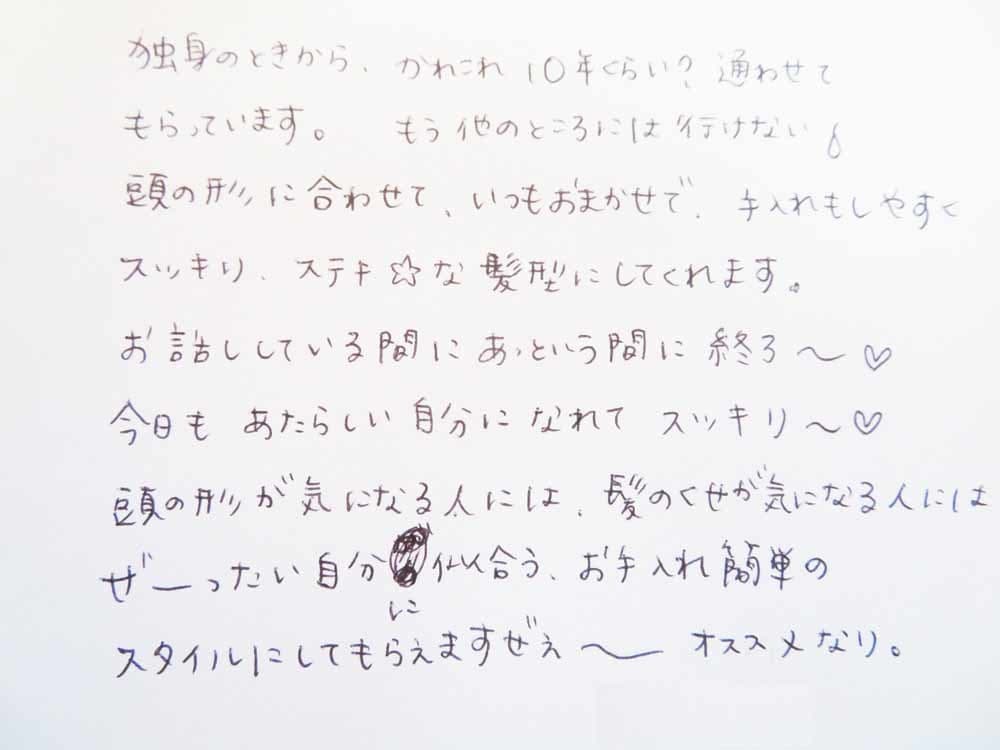 独身のときから、かれこれ10年くらい?通わせて
もらっています。 もう他のところには行けない
頭の形に合わせて、いつもおまかせで、手入れもしやすく
スッキリ、ステキ☆な髪型にしてくれます。
お話ししている間にあっという間に終了〜♡
今日も あたらしい自分になれて スッキリ〜♡
頭の形が気になる人には、髪のくせが気になる人には
ぜーったい自分に似合う、お手入れ簡単の
スタイルにしてもらえますぜぇ〜 オススメなり。